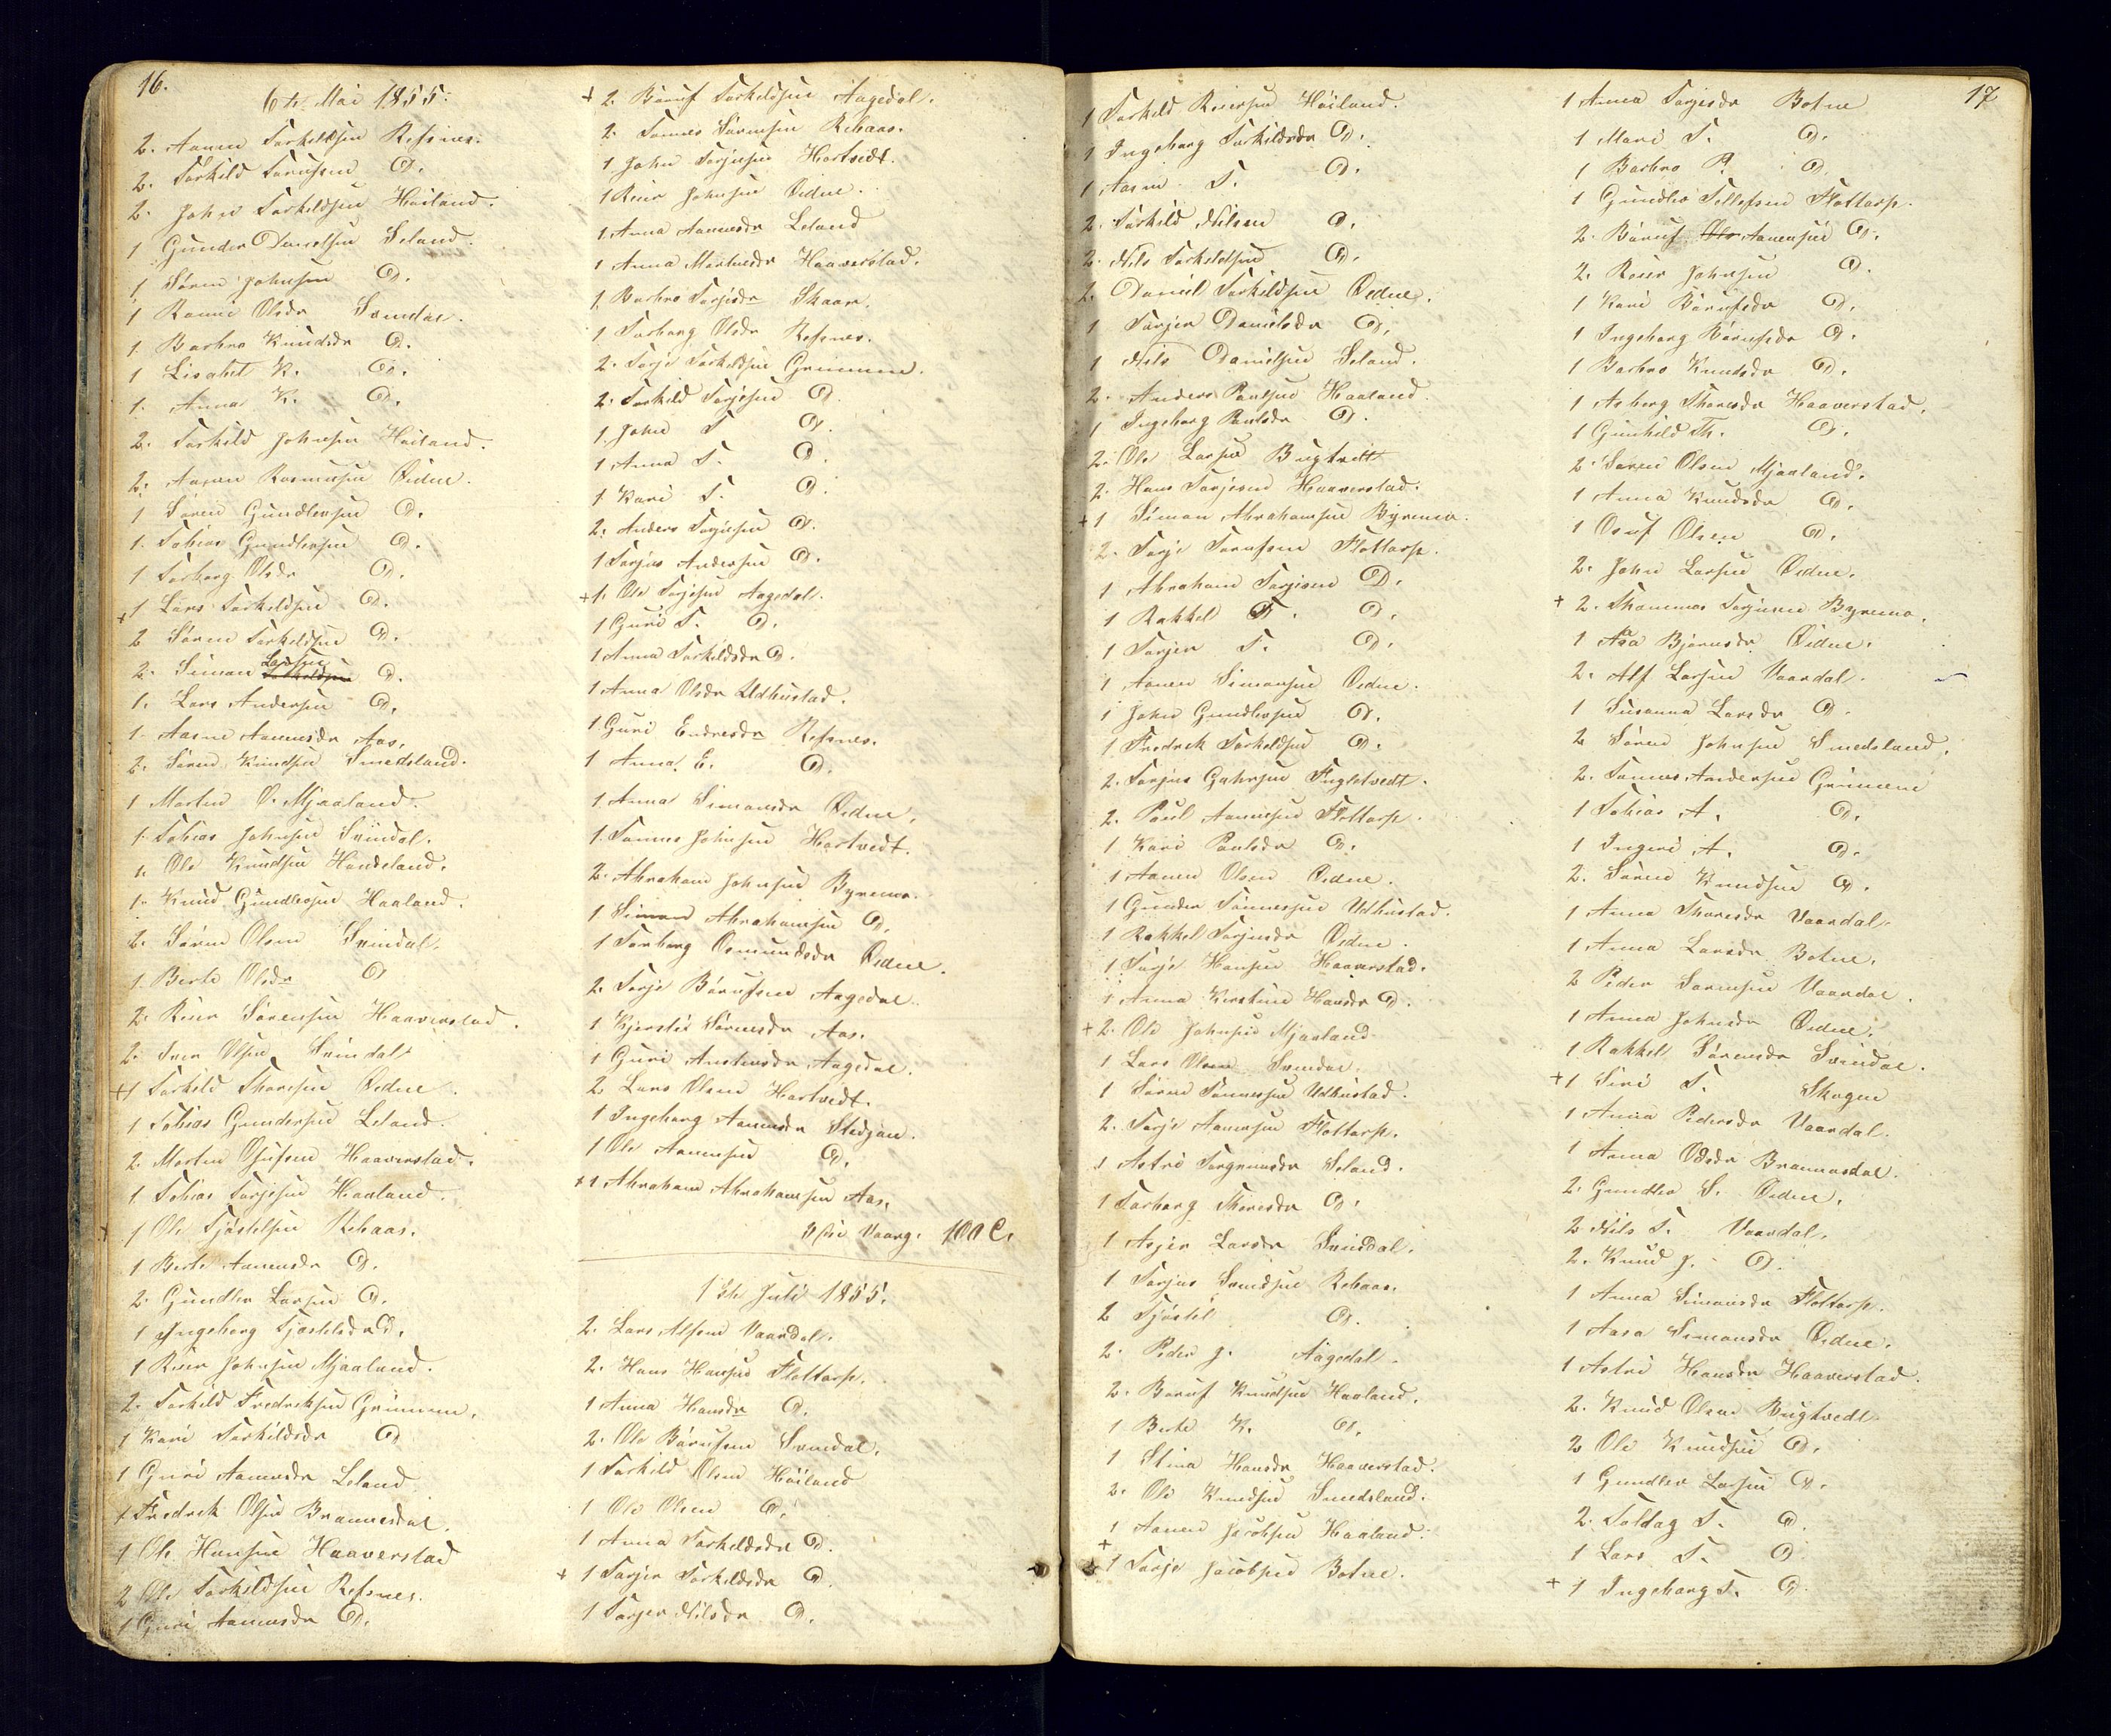 16.
6te Mai 1855.
2. Aanen Torkildsen Refsnes.
2. Torkild Torufsen D.
2. John Torkildsen Høiland.
1 Gunder Danielsen Leland.
1 Søren Johnsen D.
1 Rannei Olsdr Svindal.
1. Barbro Knudsdr D.
1 Lisabet K. D.
1. Anna K. D.
2. Torkild Johnsen Høiland.
2. Aanen Rasmusen Øidne.
1 Søren Gundlevsen D.
1. Tobias Gundlevsen D.
1 Torborg Olsdr D.
+1 Lars Torkildsen D.
2 Søren Torkildsen D.
2. Simon Larsen D.
1. Lars Andersen D.
1. Aasne Aanensdr Aas.
2. Søren Knudsen Smedsland.
1 Marten O. Mjaaland.
1. Tobias Johnsen Svindal.
1. Ole Knudsen Haudeland.
1. Knud Gundlevsen Haaland.
2. Søren Olsen Svindal.
1. Berte Olsdr D
2. Reier Sørensen Haaverstad.
2. Iver Olsen Svindal
+1 Torkild Thoresen Øidne.
1 Tobias Gundersen Leland.
2. Morten Osufsen Haaverstad.
1. Tobias Torjesen Haaland.
1 Ole Tjøstelsen Rebaas.
1 Berte Aanensdr D.
2. Gundlev Larsen D.
1 Ingeborg Tjøstelsdr D.
1 Reier Johnsen Mjaaland.
2. Torkild Fredriksen Grimmen.
1 Kari Torkildsdr D
1 Guri Aanensdr Leland
1 Fredrik Olsen Brannesdal.
1 Ole Hansen Haaverstad
2 Ole Torkildsen Refsnes.
1 Guri Aanensdr D.
+ 2. Børuf Torkildsen Aagedal.
2. Tønnes Sørensen Rebaas.
1. John Torjusen Hortvedt.
1 Reier Johnsen Øidne.
1. Anna Aanensdr Leland
1 Anna Martensdr Haaverstad.
1. Barbro Torjesdr Skaar.
1 Torborg Olsdr Refsnes.
2. Torje Torkildsen Grimmen.
2. Torkild Torjesen D
1. John T D.
1 Anna T. D.
1. Kari T. D.
2. Anders Torjusen D.
1 Torjus Andersen D.
+1. Ole Torjesen Aagedal.
1 Guri T. D.
1 Anna Torkildsdr D.
1 Anna Olsdr Udhustad.
1. Guri Endresdr Refsnes.
1 Anna E. D.
1 Anna Simonsdr Øidne.
1. Tønnes Johnsen Hortvedt.
2. Abraham Johnsen Byremo.
1 Simon Abrahamsen D.
1 Torborg Osmundsdr Øidne.
2. Torje Børufsen Aagedal.
1 Kjersti Sørensdr Aas.
1 Guri Austensdr Aagedal.
2. Lars Olsen Hortvedt.
1 Ingeborg Aanensdr Stedjan.
1 Ole Aanensen D.
+1 Abraham Abrahamsen Aas.
100 C.
1ste Juli 1855.
2. Lars Alfsen Vaardal.
2. Hans Hansen Flottorp.
1 Anna Hansdr D.
2. Ole Børufsen Svindal.
1 Torkild Olsen Høiland
1 Ole Olsen D.
1 Anna Torkildsdr D.
+ 1 Torjer Torkildsdr D.
1 Torjer Nilsdr D.
1 Torkild Reiersen Høiland.
1 Ingeborg Torkildsdr D.
1 Aasne T. D.
2. Torkild Nilsen D.
2. Nils Torkildsen D.
2. Daniel Torkildsen Øidne.
1 Torjer Danielsdr D.
1 Nils Danielsen Leland.
2. Anders Paulsen Haaland.
1 Ingeborg Paulsdr D.
2. Ole Larsen Bugtvedt
2. Hans Torjesen Haaverstad.
+1 Simon Abrahamsen Byremo.
2. Torje Torufsen Flottorp.
1 Abraham Torjesen D.
1 Rakkel T. D.
1 Torjer T. D.
1 Aanen Simonsen Øidne.
1 John Gundlevsen D.
1 Fredrik Torkildsen D.
2. Torjus Gahrsen Fugletvedt.
2. Paul Aanensen Flottorp.
1 Kari Paulsdr D.
1 Aanen Olsen Øidne.
1 Gunder Tønnessen Udhustad.
1 Rakkel Torjusdr Øidne.
1 Torje Hansen Haaverstad.
1 Anna Kirstine Hansdr D.
+2. Ole Johnsen Mjaaland
1 Lars Olsen Svindal.
1 Søren Tønnessen Udhustad.
2. Torje Aanensen Flottorp.
1 Astri Torgrimsdr Leland.
1 Torborg Thoresdr D.
1 Asjer Larsdr Svindal.
1 Torjus Svendsen Rebaas.
2 Tjøstel D.
2. Peder J. Aagedal.
2. Børuf Knudsen Haaland.
1 Berte K. D.
1 Stina Hansdr Haaverstad.
2. Ole Knudsen Smedsland.
1 Aanen Jacobsen Haaland.
+1 Torje Jacobsen Botne.
17
1 Anna Torjesdr Botne
1 Mari T. D.
1 Barbro P. D.
1 Gundlev Tellefsen Flottorp.
2. Børuf Aanensen D.
2. Reier Johnsen D.
1 Kari Børufsdr D.
1 Ingeborg Børufsdr D.
1 Barbro Knudsdr D.
1 Asborg Thoresdr Haaverstad.
1 Gunhild Th. D.
2 Søren Olsen Mjaaland.
1 Anna Knudsdr D.
1 Osuf Olsen D.
2. John Larsen Øidne.
+ 2. Thommas Torjusen Byremo.
1 Asa Bjørnsdr Øidne.
2. Alf Larsen Vaardal.
1 Susanna Larsdr D.
2 Søren Johnsen Smedsland.
2. Tønnes Andersen Grimmen
1 Tobias A. D.
1 Ingeri A. D.
2. Søren Knudsen D.
1 Anna Thoresdr Vaardal.
1 Anna Larsdr Botne.
2 Peder Sørensen Vaardal.
1 Anna Johnsdr Øidne.
1 Rakkel Sørensdr Svindal.
+1 Siri T. Skogen
1 Anna Pedersdr Vaardal.
1 Anna Olsdr Brannesdal.
2. Gundlev S. Øidne.
2 Nils T. Vaardal.
2. Knud J. D.
1 Anna Simonsdr Flottorp.
1 Aasa Simonsdr Øidne.
1 Astri Hansdr Haaverstad.
2. Knud Olsen Bugtvedt
2 Ole Knudsen D.
1 Gundlev Larsen D.
2. Toldag T. D.
1 Lars T. D
+ 1 Ingeborg T. D.